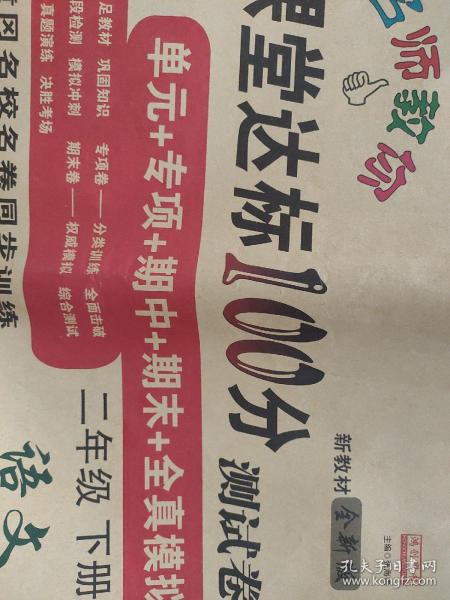 名师教你
课堂达标100分
测试卷
新教材 全新版
主编
单元+专项+期中+期末+全真模拟
足教材 巩固知识 专项卷——分类训练 全面击破
段检测 模拟冲刺 期末卷——权威模拟 综合测试
真题演练 决胜考场
二年级 下册
冈名校名卷同步训练
语文
孔夫子旧书网